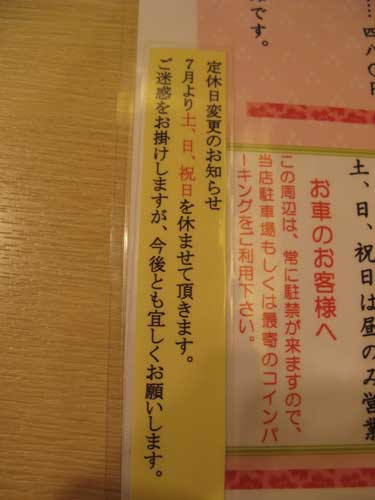 …四八〇円
です。
土、日、祝日は昼のみ営業
お車のお客様へ
この周辺は、常に駐禁が来ますので、
当店駐車場もしくは最寄のコインパ
ーキングをご利用下さい。
定休日変更のお知らせ
7月より土、日、祝日を休ませて頂きます。
ご迷惑をお掛けしますが、今後とも宜しくお願いします。